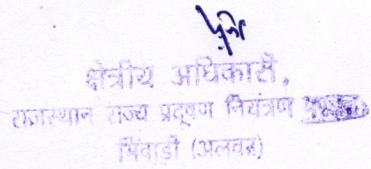 क्षेत्रीय अधिकारी,
राजस्थान राज्य प्रदूषण नियंत्रण
भिवाड़ी (अलवर)